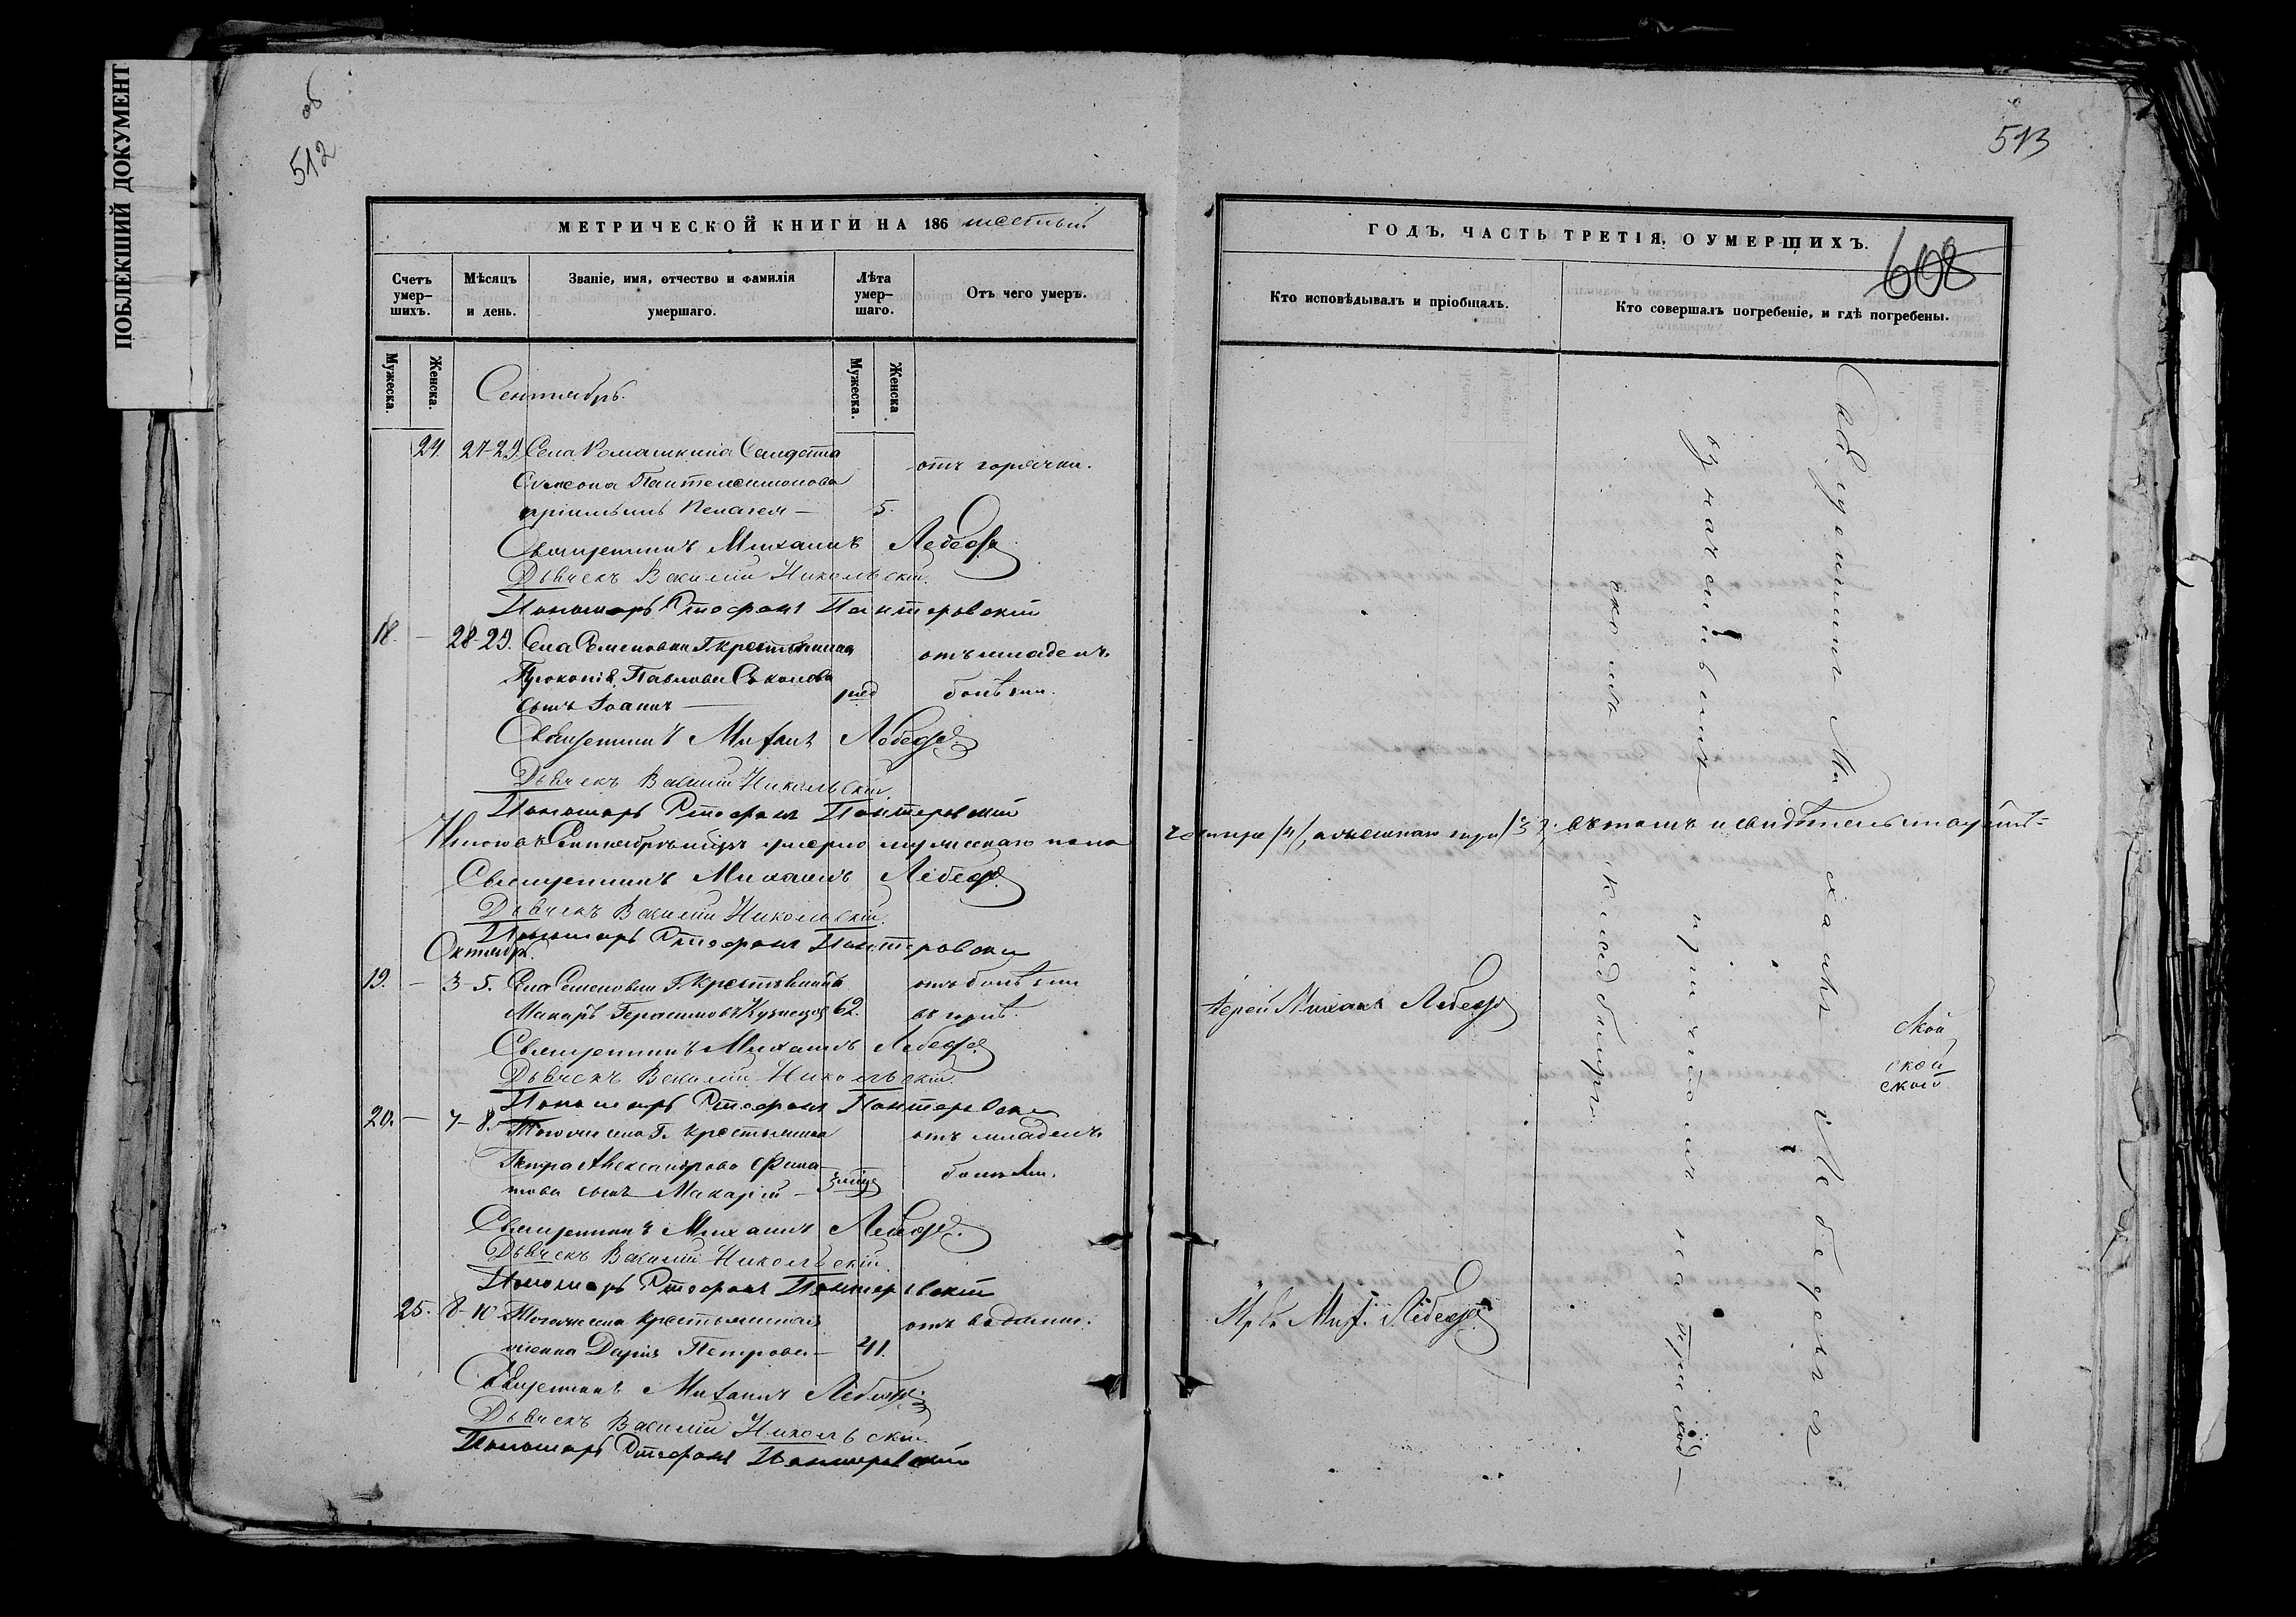 ПОБЛЕКШИЙ ДОКУМЕНТ
512 об
513
МЕТРИЧЕСКОЙ КНИГИ НА 186 шестый
Счетъ умер-
шихъ.
Мѣсяцъ
и день.
Званіе, имя, отчество и фамилія
умершаго.
Лѣта
умер-
шаго.
Отъ чего умеръ.
Мужеска.
Женска.
Мужеска.
Женска
Сентябрь.
24. 27-29. Села Ромашкина Солдата отъ горячки.
Симеона Пантелеимонова
Пелагея — 5.
Священникъ Михаилъ Лебедевъ
Дьячекъ Василій Никольскій.
Пономарь Стефанъ Пантеровскій
18. — 28-29. Села Семеновки Г. крестьянина отъ младенч.
Прокопія Павлова сынъ Іоаннъ — болѣзни.
Священникъ Михаилъ Лебедевъ
Дьячекъ Василій Никольскій.
Пономарь Стефанъ Пантеровскій
Итого въ Сентябрѣ мѣсяцѣ умерло мужескаго пола
Священникъ Михаилъ Лебедевъ
Дьячекъ Василій Никольскій.
Пономарь Стефанъ Пантеровскій
Октябрь.
19. — 3-5. Села Семеновки Г. крестьянинъ отъ болѣзни
Макаръ Герасимовъ Кузнецовъ 62. въ горлѣ.
Священникъ Михаилъ Лебедевъ
Дьячекъ Василій Никольскій.
Пономарь Стефанъ Пантеровскій
20. — 7-8. Тогоже села Г. крестьянина отъ младенч.
Петра Александрова сынъ Макарій — болѣзни.
Священникъ Михаилъ Лебедевъ.
Дьячекъ Василій Никольскій.
Пономарь Стефанъ Пантеровскій
25. 8-10 Тогоже села крестьянская
женка Дарія Петрова — 41.
Священникъ Михаилъ Лебедевъ
Дьячекъ Василій Никольскій.
Пономарь Стефанъ Пантеровскій
ГОДЪ, ЧАСТЬ ТРЕТІЯ, О УМЕРШИХЪ.
608
Кто исповѣдывалъ и пріобщалъ.
Кто совершалъ погребеніе, и гдѣ погребены.
четыре /4/, а женскаго три /3/; въ томъ и свидѣтельствуемъ=
Іерей Михаилъ Лебедевъ
Мих. Лебедевъ
Священникъ Михаилъ Лебедевъ съ
означеннымъ причтомъ на приход-
скомъ кладбищѣ.
ской
ской
ской